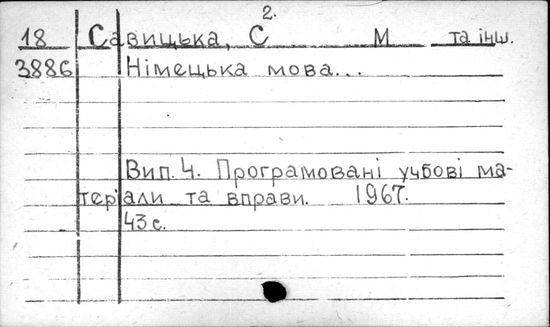 2.
18 Савицька, С М та інш.
3886 Німецька мова...
Вип. 4. Програмовані учбові ма-
теріали та вправи. 1967.
43 с.